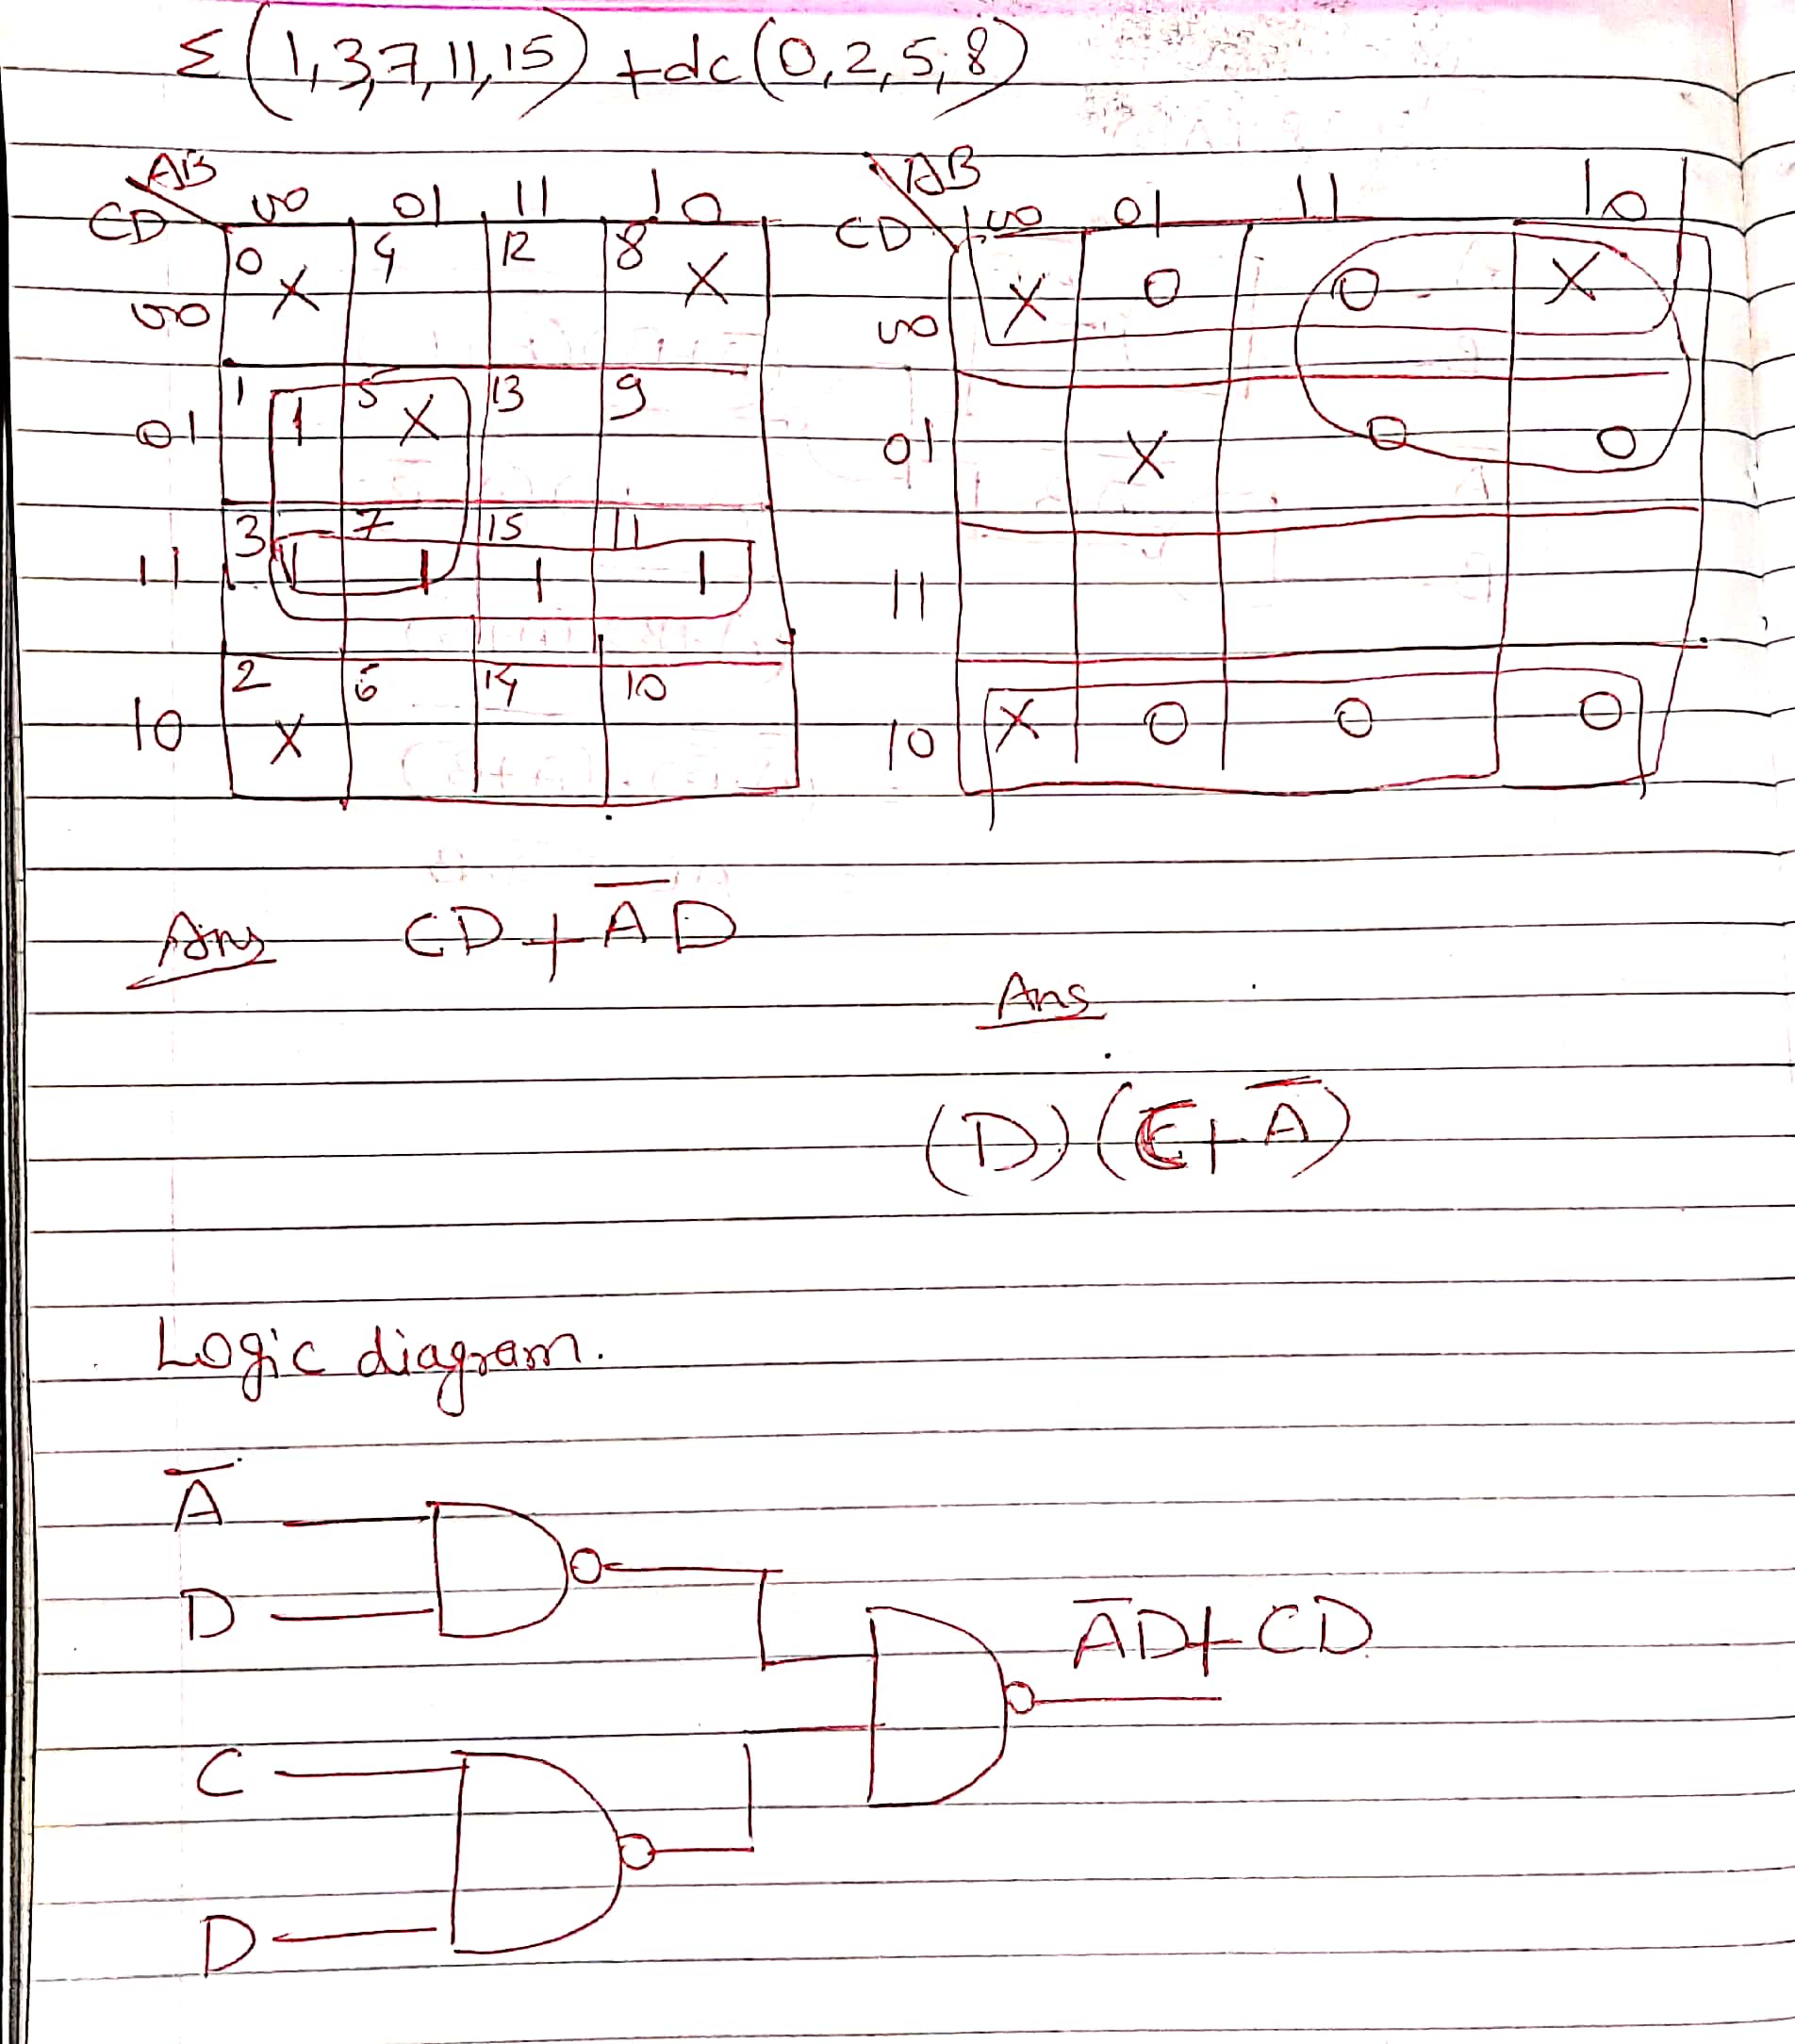 Σ(1,3,7,11,15) + dc(0,2,5,8)
AB
CD 00 01 11 10
0 X 4 12 8 X
00
1 1 5 X 13 9
01
3 1 7 1 15 1 11 1
11
2 X 6 14 10
10
AB
CD 00 01 11 10
00 X 0 0 X
01 X 0 0
11
10 X 0 0 0
Ans CD + A̅D
Ans
(D)(C + A̅)
Logic diagram.
A̅
D
A̅D + CD
C
D